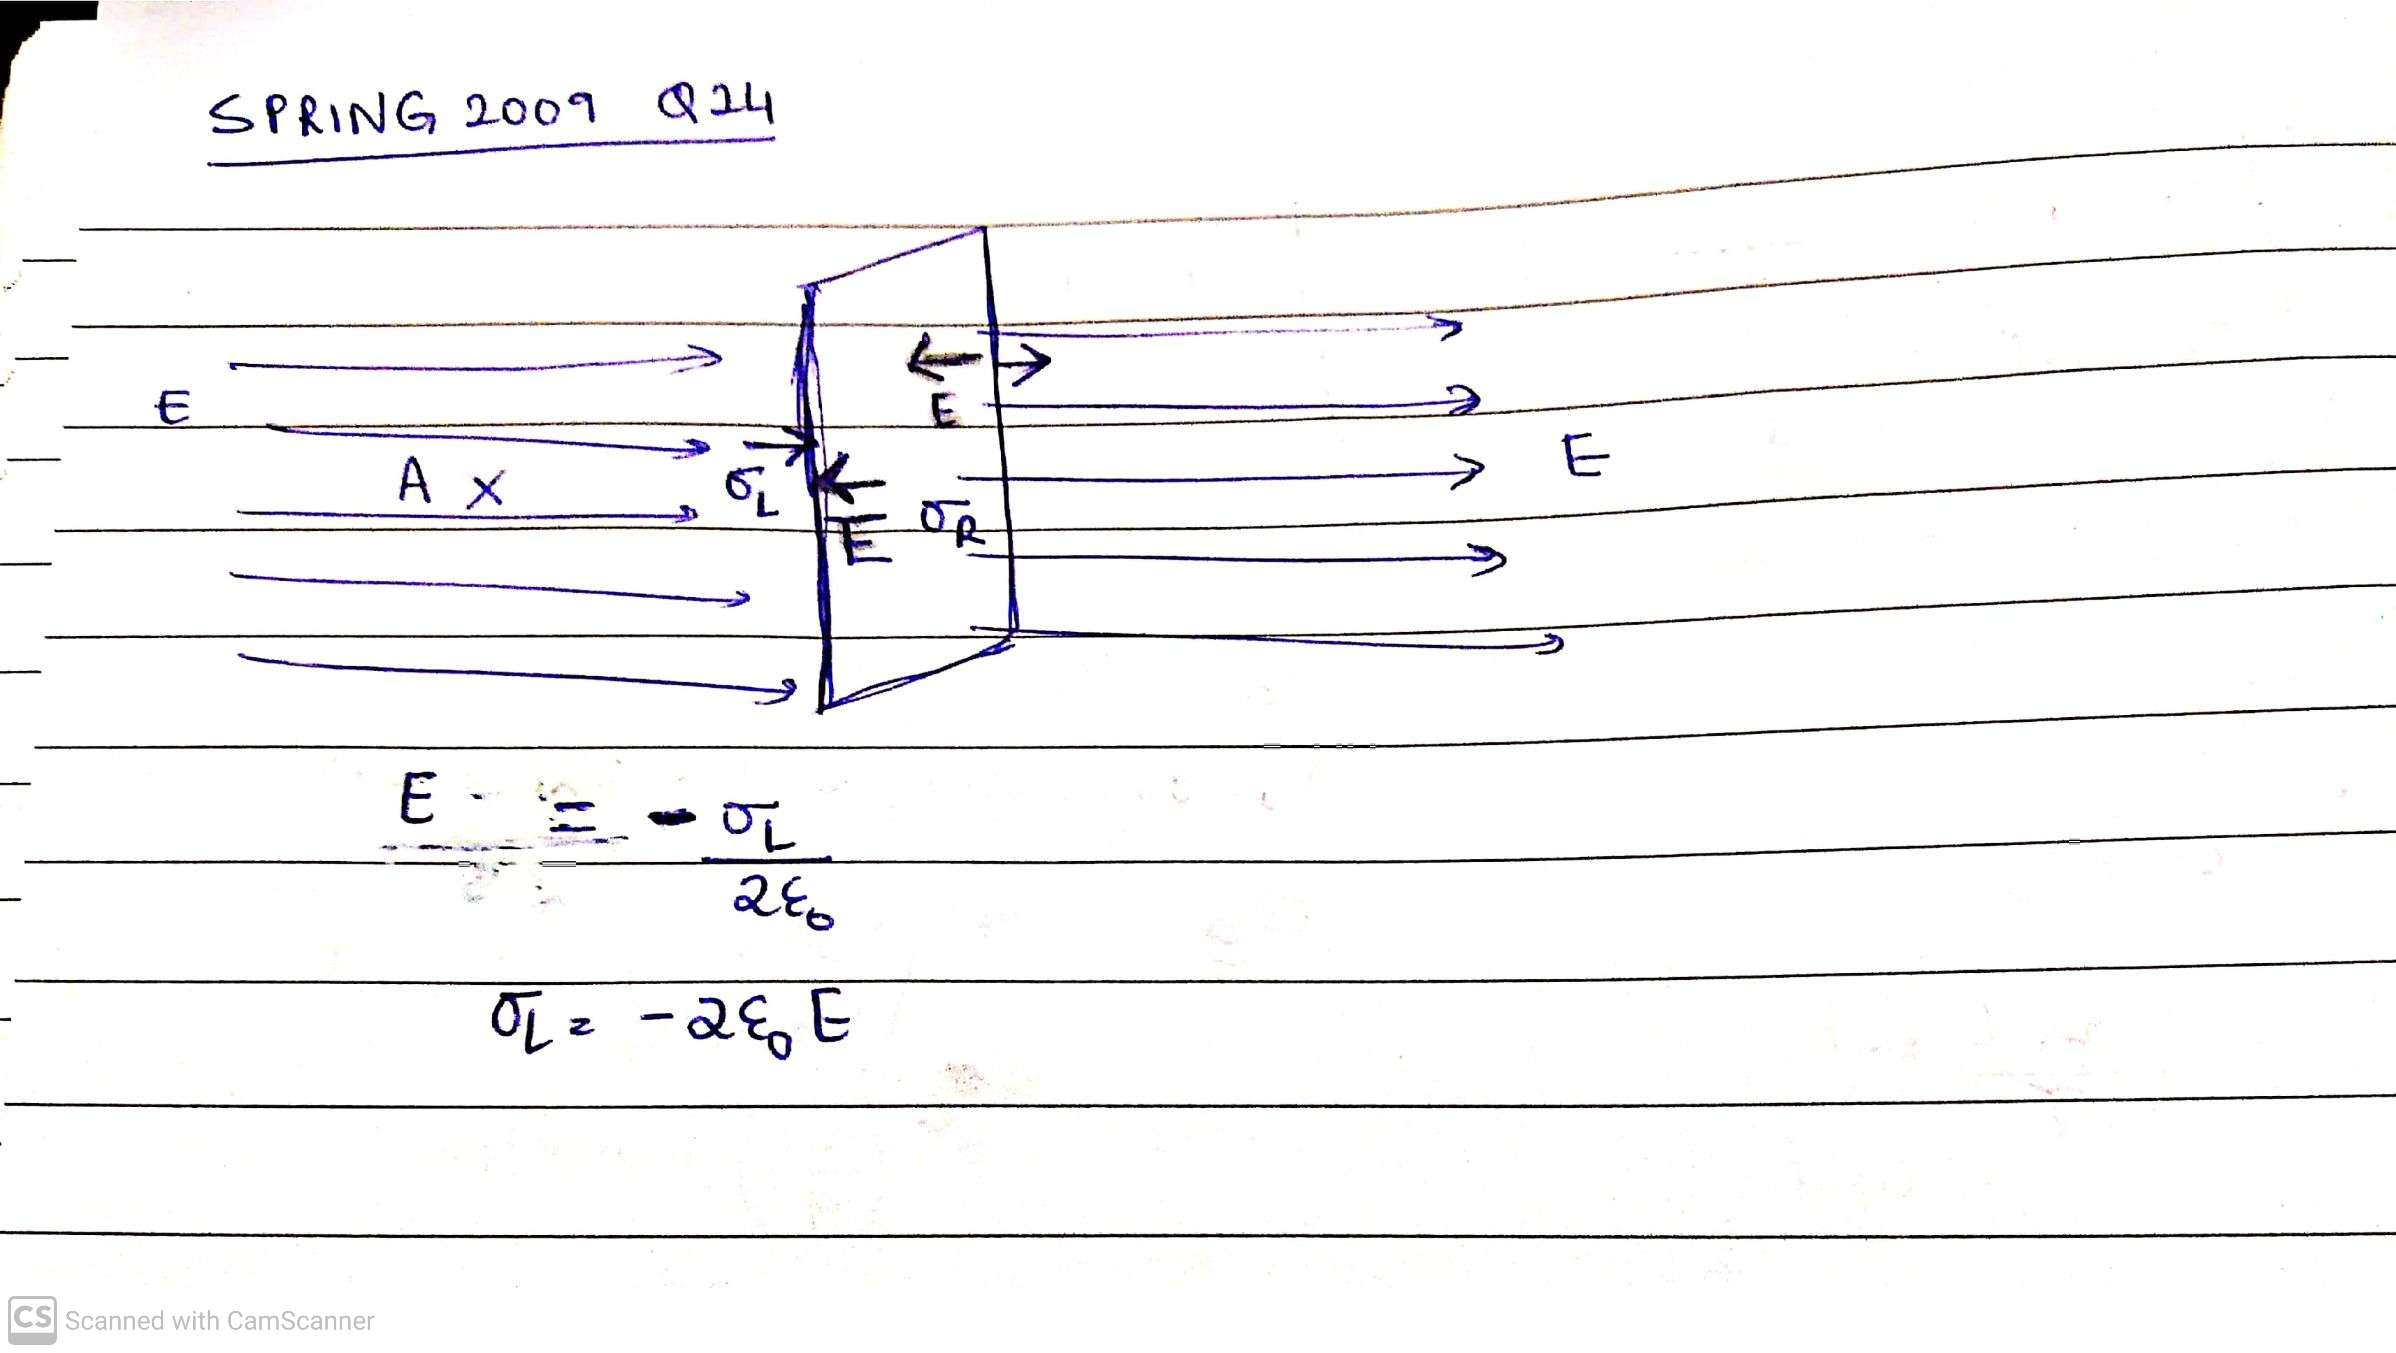 SPRING 2009 Q24
E
E
E
A x
σL
E
σR
E = - σL
2ε0
σL = -2ε0 E
CS Scanned with CamScanner